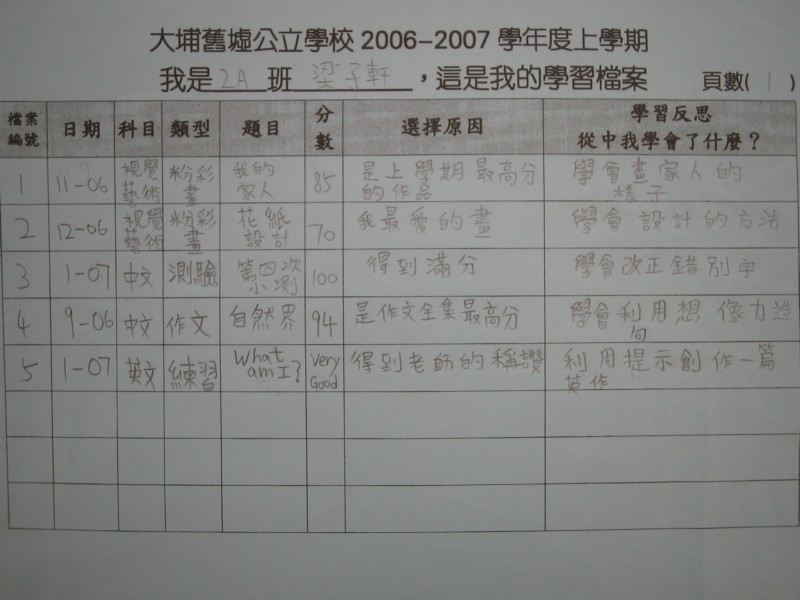 大埔舊墟公立學校 2006-2007 學年度上學期
我是 2A 班 梁子軒 ，這是我的學習檔案 頁數( 1 )
檔案編號 日期 科目 類型 題目 分數 選擇原因 學習反思 從中我學會了什麼？
1 11-06 視覺藝術 粉彩畫 我的家人 85 是上學期最高分的作品 學會畫家人的樣子
2 12-06 視覺藝術 粉彩畫 花紙設計 70 我最愛的畫 學會設計的方法
3 1-07 中文 測驗 第四次小測 100 得到滿分 學會改正錯別字
4 9-06 中文 作文 自然界 94 是作文全集最高分 學會利用想像力造句
5 1-07 英文 練習 What am I? Very Good 得到老師的稱讚 利用提示創作一篇英作